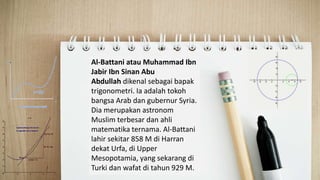 Al-Battani atau Muhammad Ibn
Jabir Ibn Sinan Abu
Abdullah dikenal sebagai bapak
trigonometri. Ia adalah tokoh
bangsa Arab dan gubernur Syria.
Dia merupakan astronom
Muslim terbesar dan ahli
matematika ternama. Al-Battani
lahir sekitar 858 M di Harran
dekat Urfa, di Upper
Mesopotamia, yang sekarang di
Turki dan wafat di tahun 929 M.